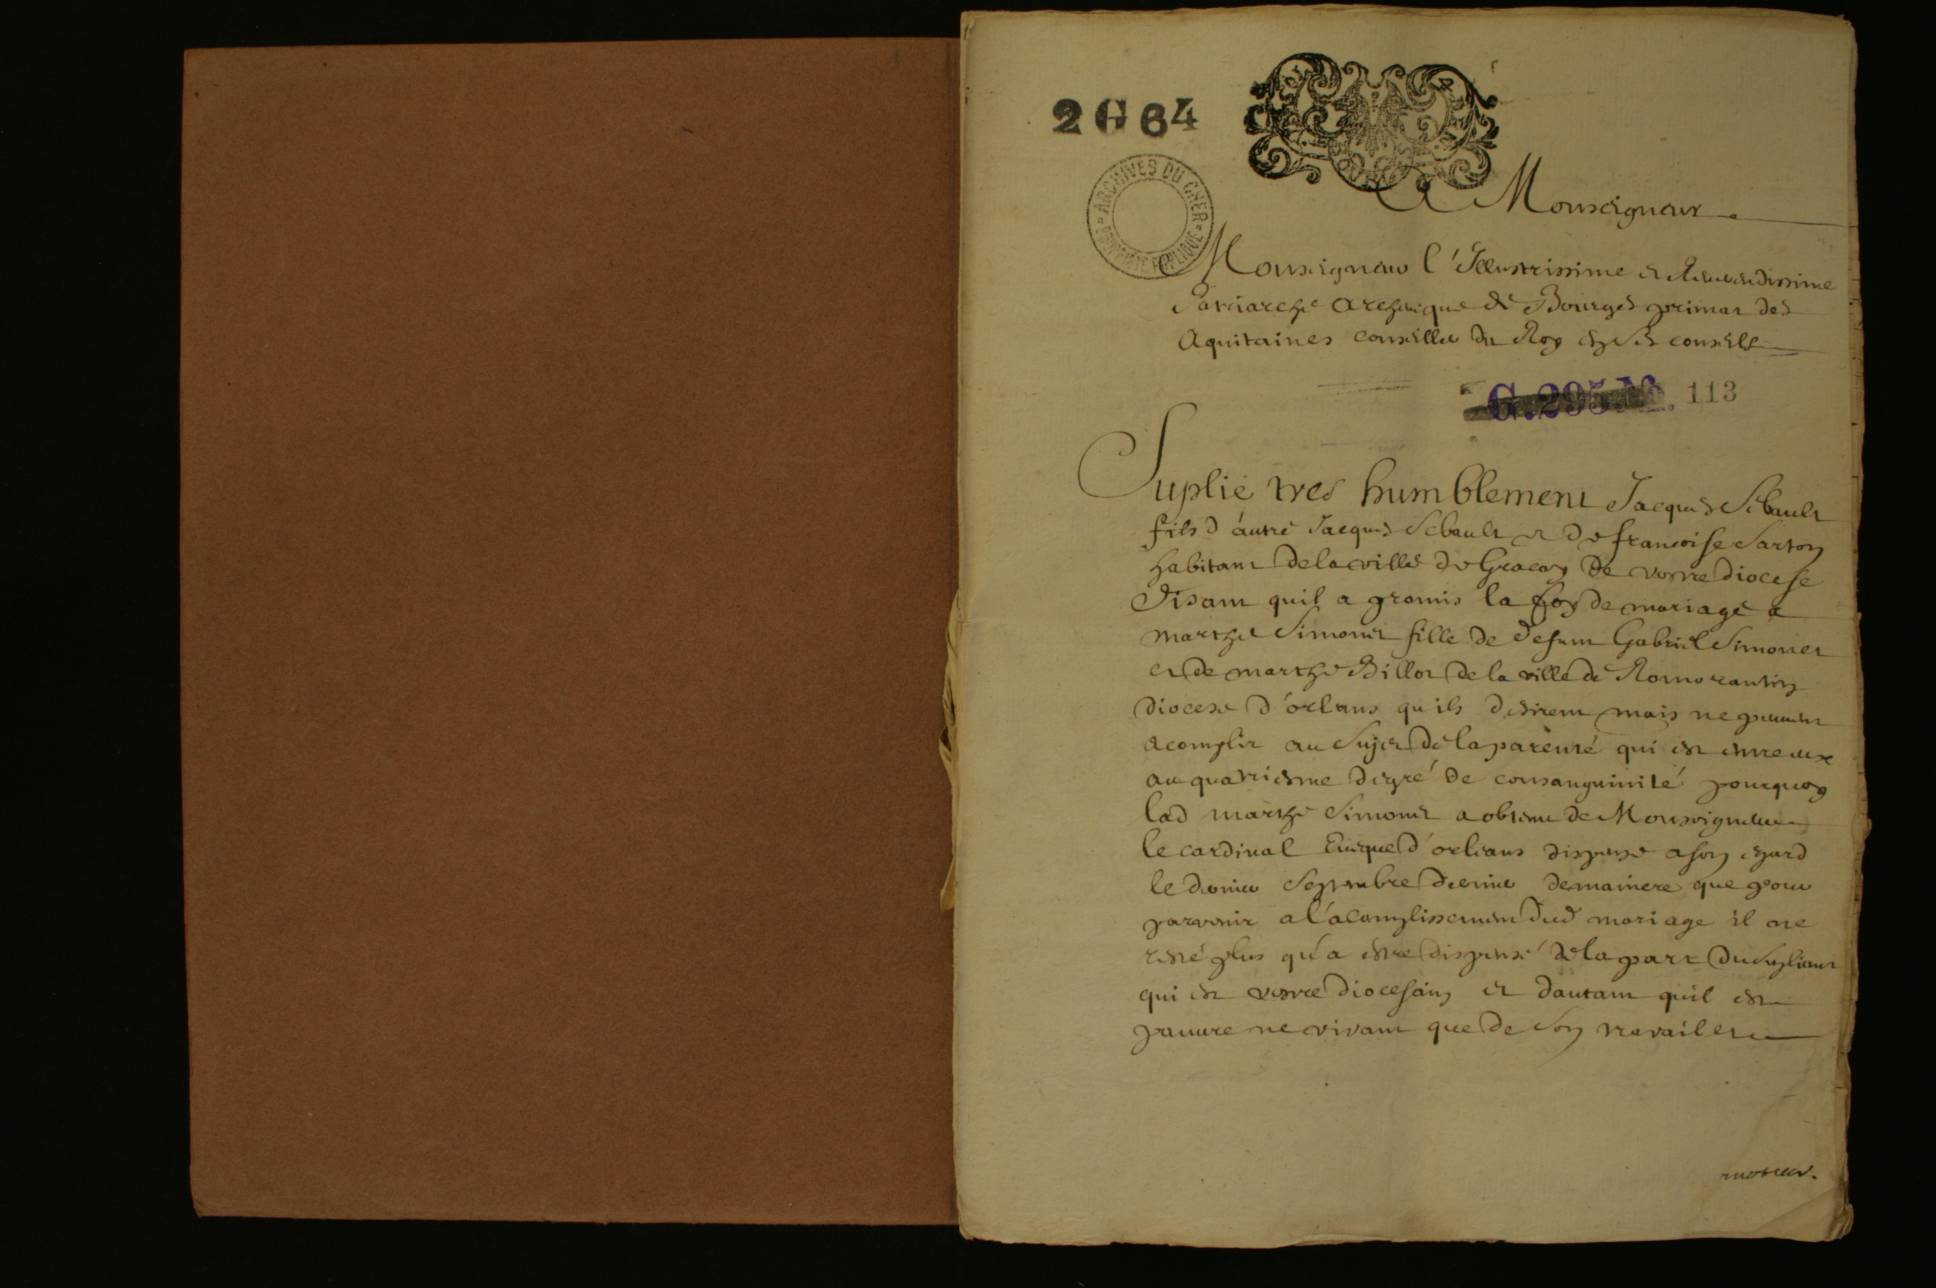 2 G 64
ARCHIVES DU CHER
A Monseigneur
Monseigneur l'Illustrissime et Reverendissime
Patriarche archevesque de Bourges primat des
Aquitaines conseiller du Roy en ses conseils
G. 295 113
Suplie tres humblement Jacques Sebault
fils d'autre Jacques Sebault et de francoise Sarton
habitant de la ville de Gracay de vostre diocese
Disant quil a promis la foy de mariage a
marthe Simonet fille de defunt Gabriel Simonet
et de marthe Billot de la ville de Romorantin
diocese d'orleans qu'ils desirent mais ne peuvent
acomplir au Sujet de la parenté qui est entre eux
au quatriesme degré de consanguinité pourquoy
lad marthe Simonet a obtenu de Monseigneur
le cardinal Evesque d'orleans dispense a son egard
le dernier Septembre dernier de maniere que pour
parvenir a l'acomplissement dud mariage il ne
reste plus qu'a estre dispensé de la part du Supliant
qui est vostre diocesain et dautant quil est
pauvre ne vivant que de Son travail et